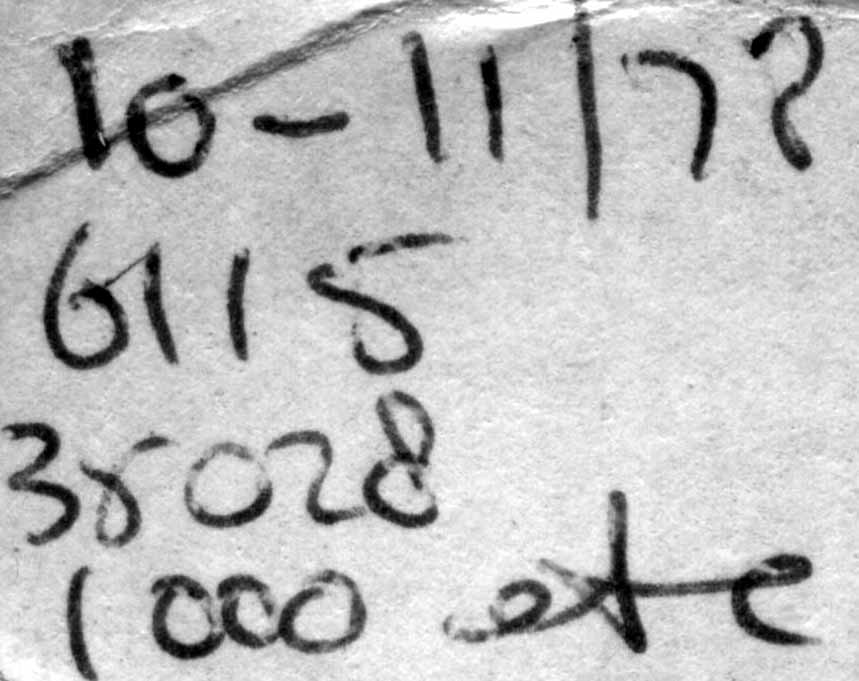 10-11/78
6115
38028
1000 etc